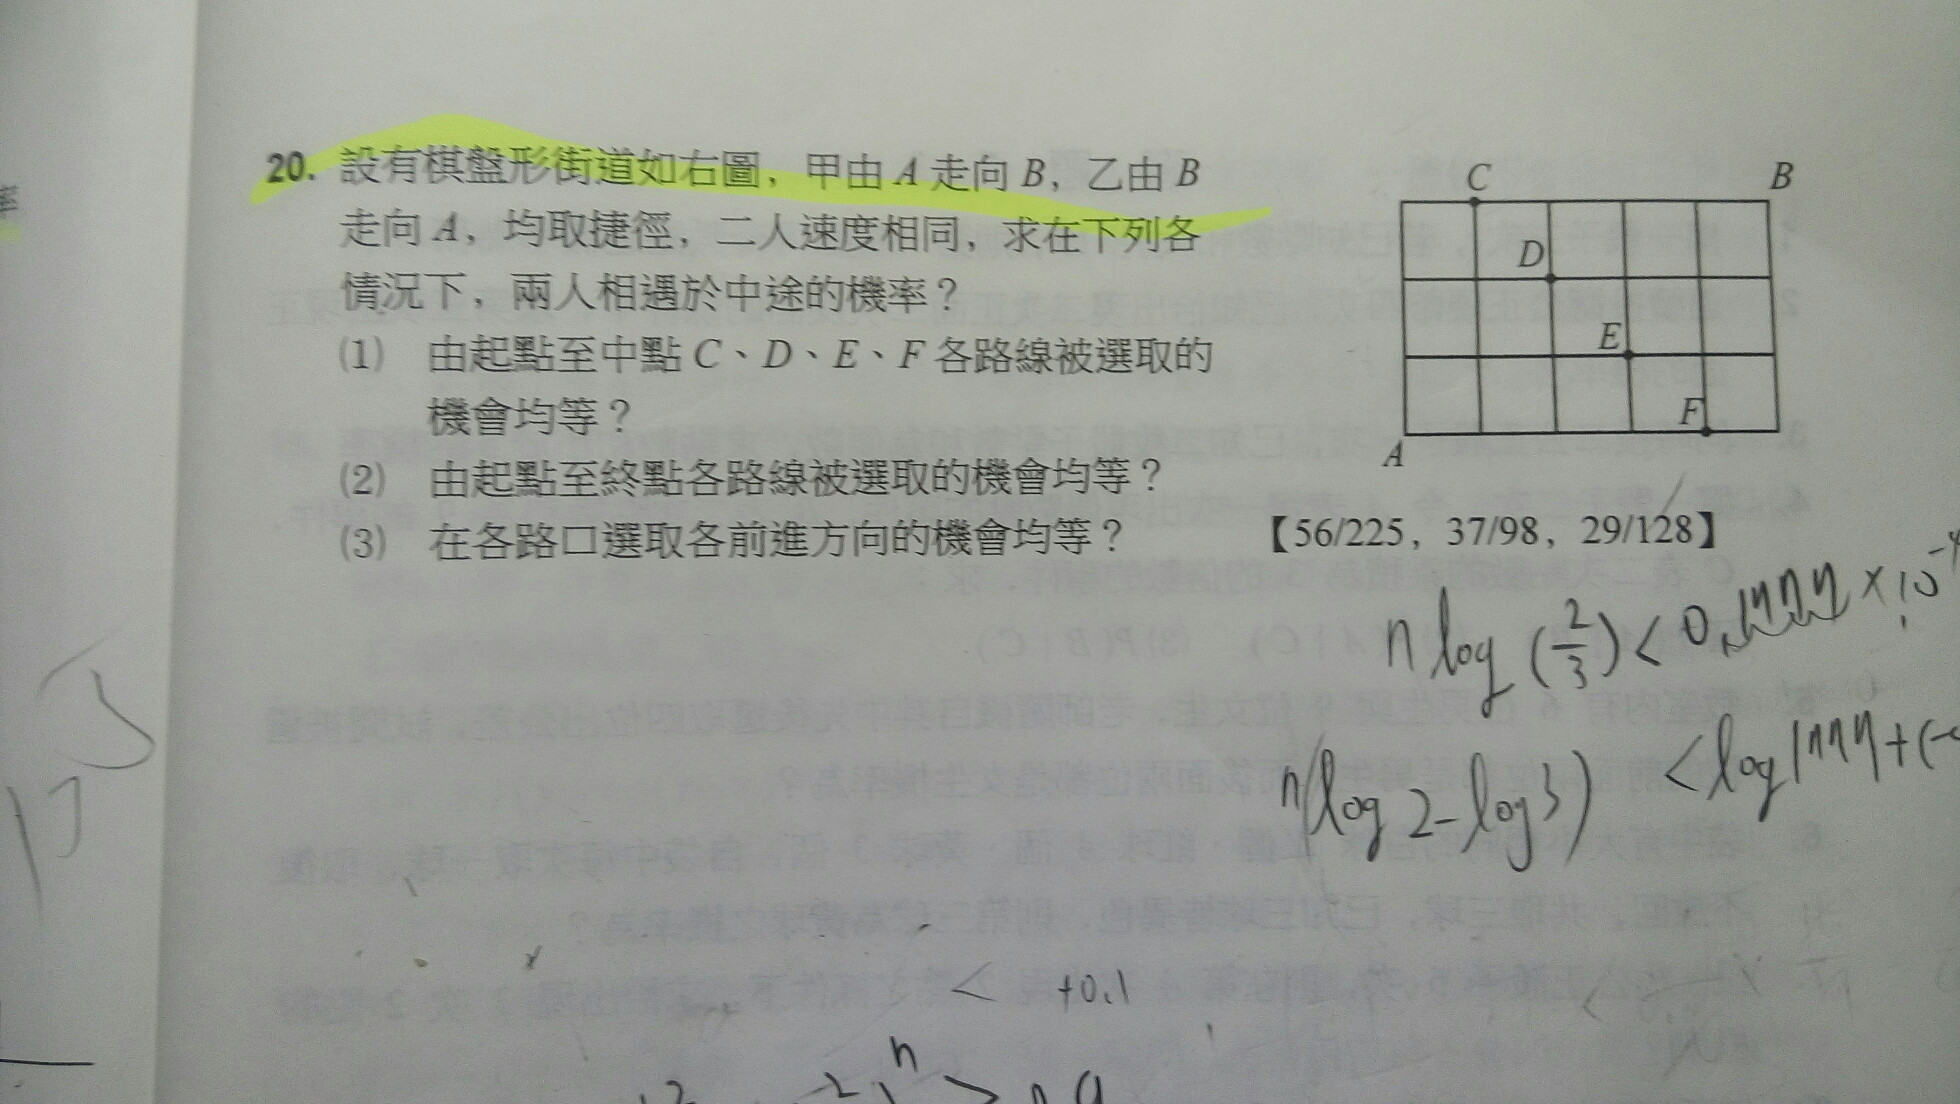 20. 設有棋盤形街道如右圖，甲由 A 走向 B，乙由 B
走向 A，均取捷徑，二人速度相同，求在下列各
情況下，兩人相遇於中途的機率？
(1) 由起點至中點 C、D、E、F 各路線被選取的
機會均等？
(2) 由起點至終點各路線被選取的機會均等？
(3) 在各路口選取各前進方向的機會均等？
【56/225，37/98，29/128】
C
B
D
E
F
A
n log (2/3) <
n(log 2 - log 3) < log
< +0.1
n